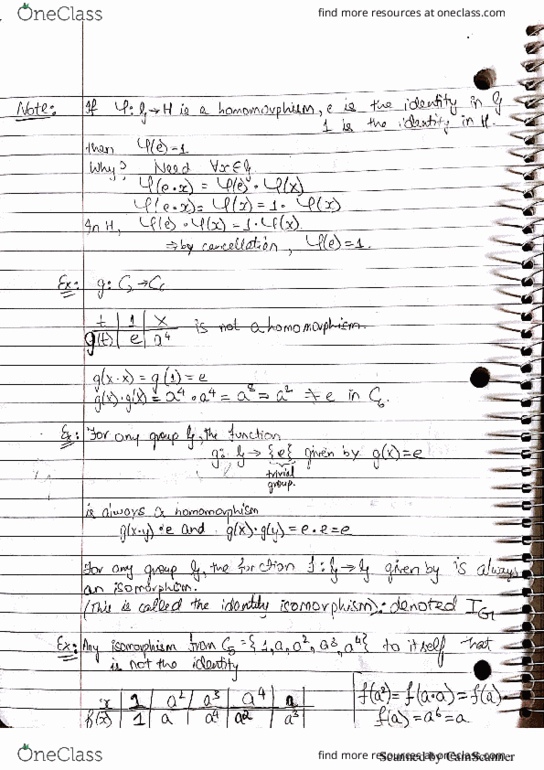 OneClass
find more resources at oneclass.com
Note: If φ: G → H is a homomorphism, e is the identity in G
1 is the identity in H.
then φ(e) = 1
Why? Need ∀x∈G
φ(e·x) = φ(e)·φ(x)
φ(e·x) = φ(x) = 1·φ(x)
In H, φ(e)·φ(x) = 1·φ(x)
⇒ by cancellation, φ(e) = 1.
Ex: g: C₂ → C₆
t | 1 | x
g(t) | e | a⁴ is not a homomorphism.
g(x·x) = g(1) = e
g(x)·g(x) = a⁴·a⁴ = a⁸ = a² ≠ e in C₆.
Ex: For any group G, the function
g: G → {e} given by g(x) = e
trivial
group.
is always a homomorphism
g(x·y) = e and g(x)·g(y) = e·e = e
For any group G, the function 1: G → G given by is always
an isomorphism.
(This is called the identity isomorphism): denoted I_G
Ex: Any isomorphism from C₅ = {1, a, a², a³, a⁴} to itself that
is not the identity
x | 1 | a² | a³ | a⁴ | a
f(x) | 1 | a | a⁴ | a² | a³
f(a²) = f(a·a) = f(a)·
f(a) = a⁶ = a
OneClass
find more resources at oneclass.com
Scanned by CamScanner